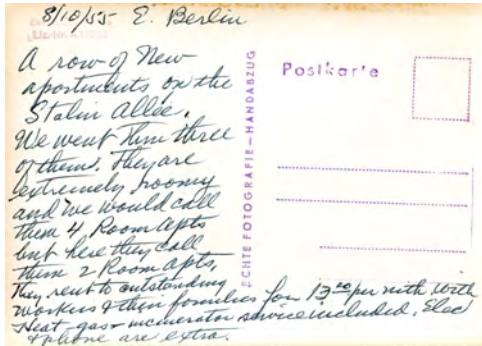 8/10/55 E. Berlin
A row of New
apartments on the
Stalin Allée.
We went thru three
of them. They are
extremely roomy
and we would call
them 4 Room Apts
but here they call
them 2 Room Apts.
They rent to outstanding
workers & their families for 13.20 per mth with
Heat - gas & incinerator service included. Elec
& phone are extra.
Postkarte
ECHTE FOTOGRAFIE – HANDABZUG